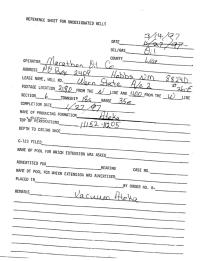 REFERENCE SHEET FOR UNDESIGNATED WELLS
DATE 3/14/97
OIL/GAS Oil
COUNTY Lea
OPERATOR Marathon Oil Co
ADDRESS PO Box 2409 Hobbs NM 88240
LEASE NAME, WELL NO. Warn State A/c 2
FOOTAGE LOCATION 2180 FROM THE N LINE AND FROM THE W LINE
SECTION 6 TOWNSHIP 18S RANGE 35E
COMPLETION DATE 1/27/97
NAME OF PRODUCING FORMATION Atoka
TOP OF PERFORATIONS 11152
DEPTH TO CASING SHOE
C-123 FILED
NAME OF POOL FOR WHICH EXTENSION WAS ASKED
ADVERTISED FOR HEARING CASE NO.
NAME OF POOL FOR WHICH EXTENSION WAS ADVERTISED
PLACED IN BY ORDER NO. R-
REMARKS Vacuum Atoka